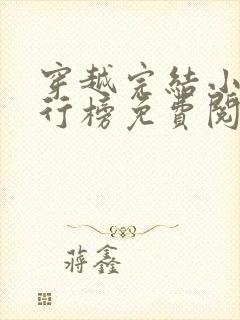 穿越完結小
行榜免費閱
蔣鑫